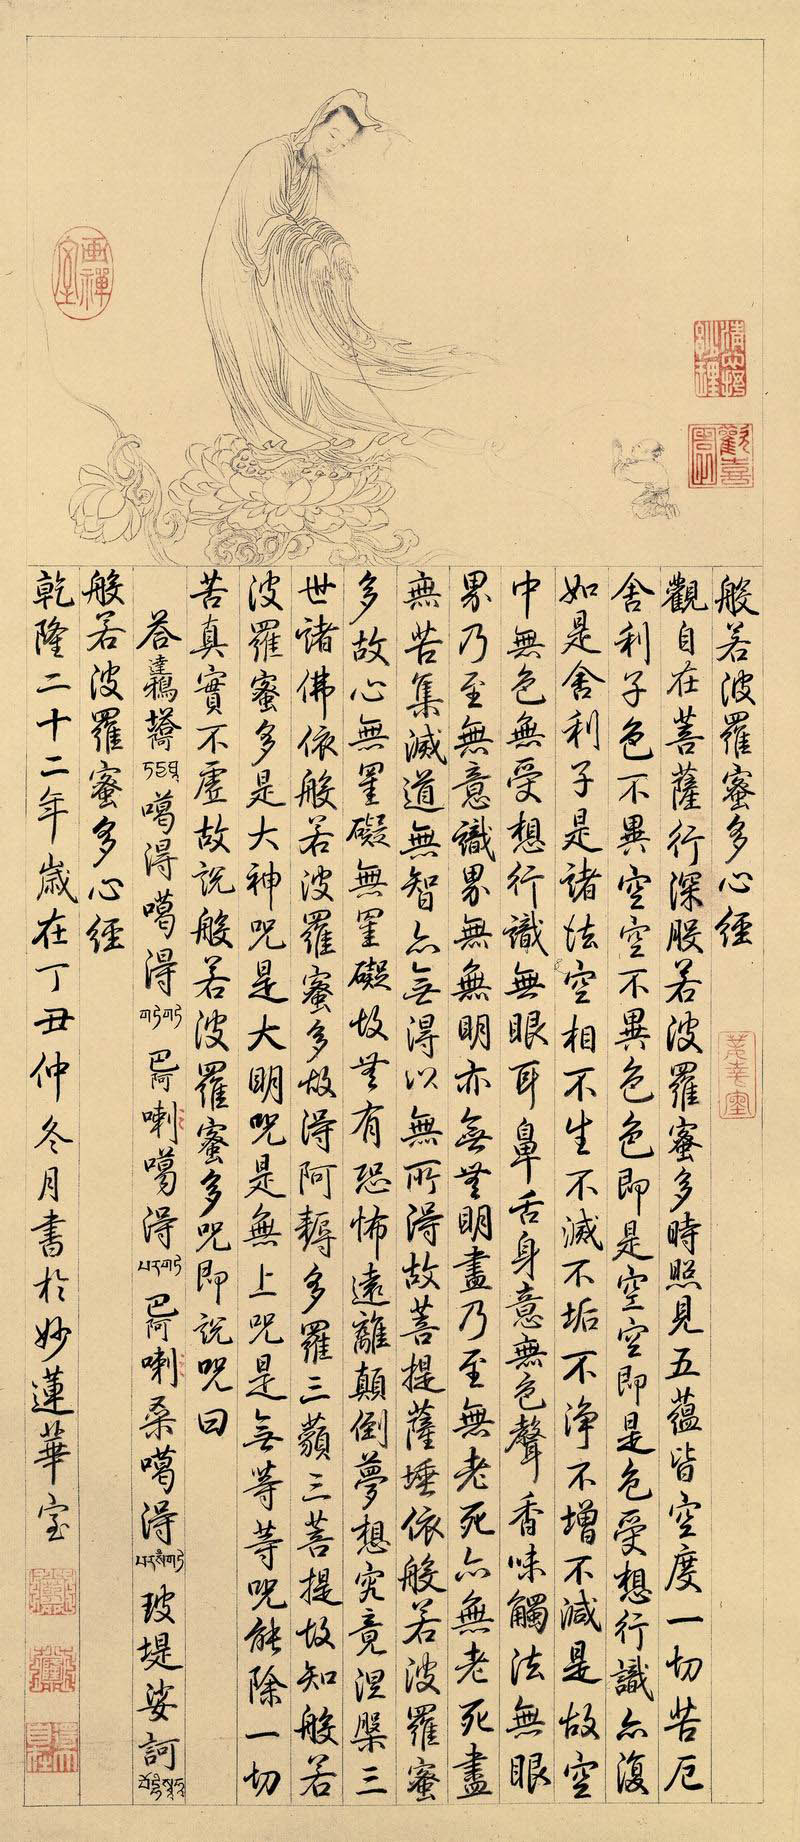 畫禪室
般若波羅蜜多心經
觀自在菩薩行深般若波羅蜜多時照見五蘊皆空度一切苦厄
舍利子色不異空空不異色色即是空空即是色受想行識亦復
如是舍利子是諸法空相不生不滅不垢不淨不增不減是故空
中無色無受想行識無眼耳鼻舌身意無色聲香味觸法無眼
界乃至無意識界無無明亦無無明盡乃至無老死亦無老死盡
無苦集滅道無智亦無得以無所得故菩提薩埵依般若波羅蜜
多故心無罣礙無罣礙故無有恐怖遠離顛倒夢想究竟涅槃三
世諸佛依般若波羅蜜多故得阿耨多羅三藐三菩提故知般若
波羅蜜多是大神咒是大明咒是無上咒是無等等咒能除一切
苦真實不虛故說般若波羅蜜多咒即說咒曰
答達鴉塔噶得噶得巴阿喇噶得巴阿喇桑噶得玻堤娑訶
般若波羅蜜多心經
乾隆二十二年歲在丁丑仲冬月書於妙蓮華室